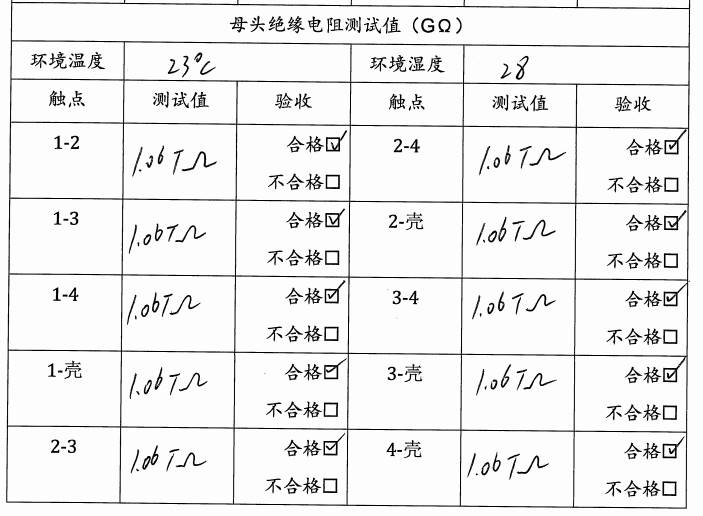 母头绝缘电阻测试值（GΩ）
环境温度 23°C 环境湿度 28
触点 测试值 验收 触点 测试值 验收
1-2 1.06TΩ 合格☑ 2-4 1.06TΩ 合格☑
不合格☐ 不合格☐
1-3 1.06TΩ 合格☑ 2-壳 1.06TΩ 合格☑
不合格☐ 不合格☐
1-4 1.06TΩ 合格☑ 3-4 1.06TΩ 合格☑
不合格☐ 不合格☐
1-壳 1.06TΩ 合格☑ 3-壳 1.06TΩ 合格☑
不合格☐ 不合格☐
2-3 1.06TΩ 合格☑ 4-壳 1.06TΩ 合格☑
不合格☐ 不合格☐